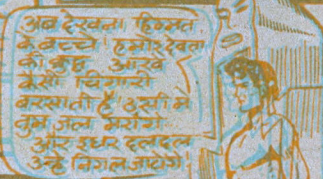 अब देखना हिम्मत
के बच्चे! हमारे देवता
की कुछ आंख
कैसी चिंगारी
बरसाती है! उसी में
तुम जल मरोगे
और इधर दलदल
उन्हें निगल जाएगा!